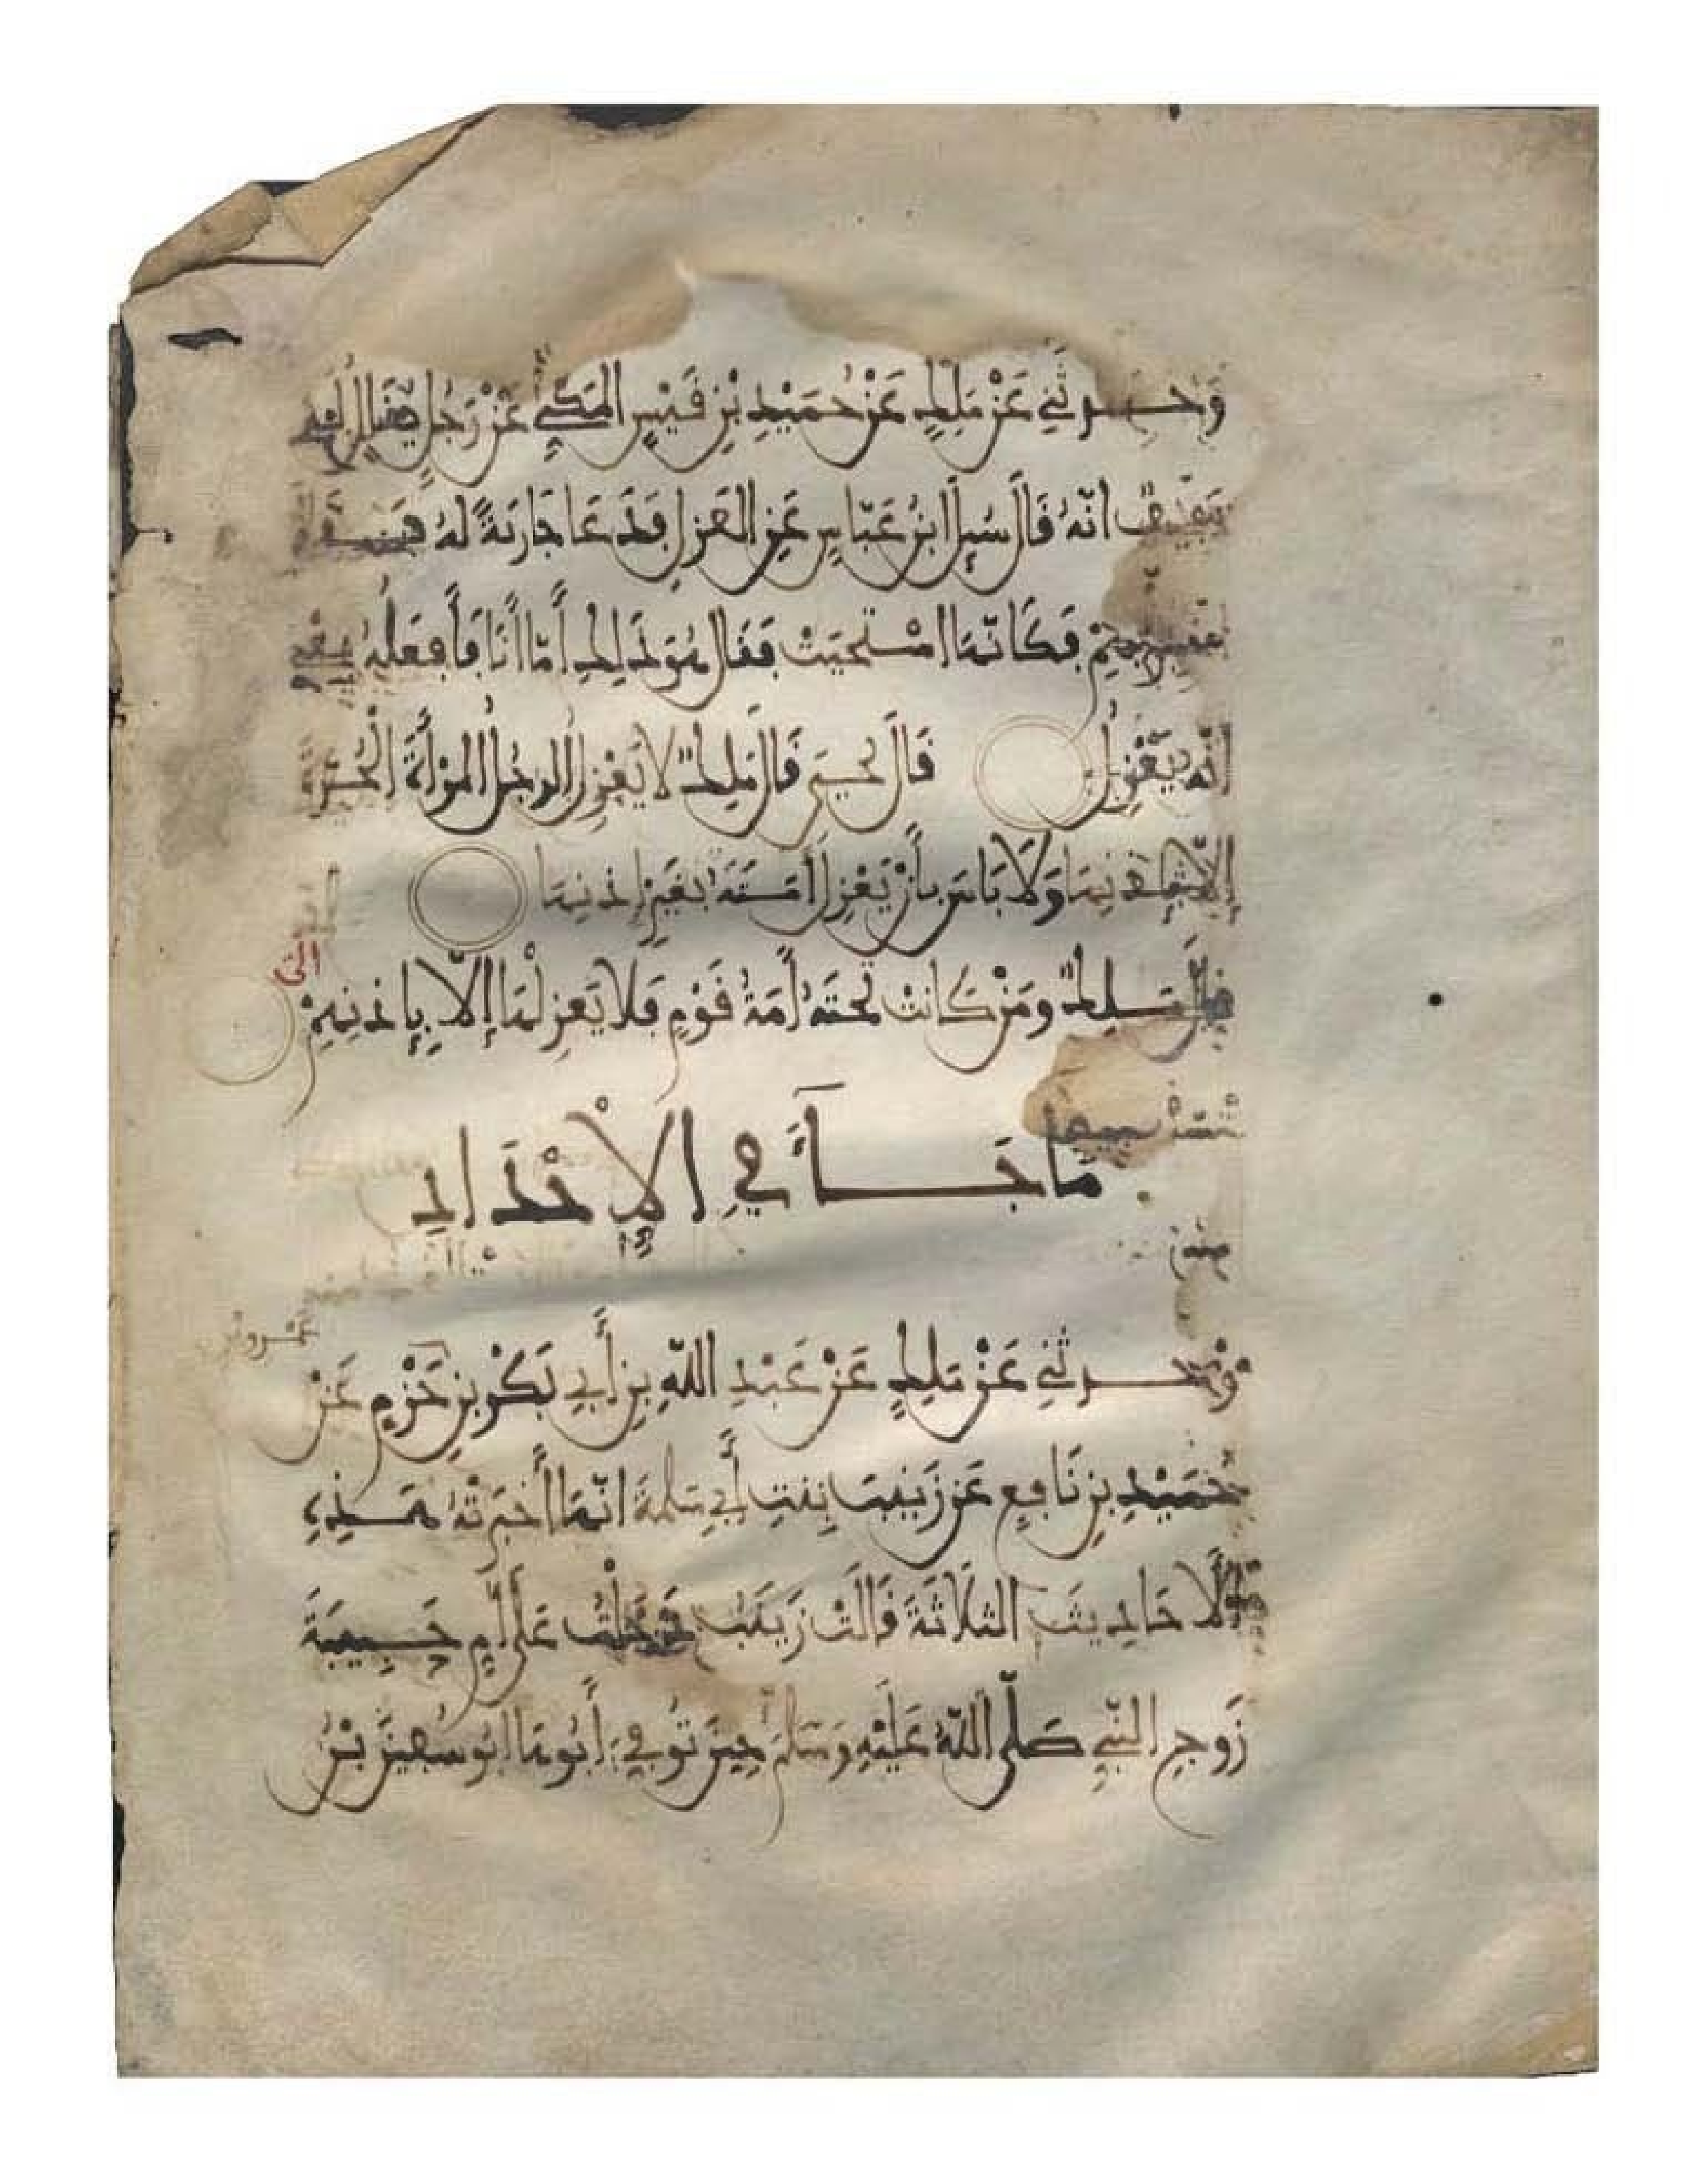 وَحدثني عَنْ مَلِكٍ عَنْ حُمَيْدِ بْنِ قَيْسٍ المَكِّيِّ عَنْ رَجُلٍ يُقَالُ لَهُ
انّهُ قَالَ سُئِلَ ابنُ عَبّاسٍ عَنِ العَزلِ فَدَعَا جَارِيَةً لهُ فقال
أخبريهم فَكَانّهَا اسْتحيَتْ فَقَال هُوَ ذَلِك أَمّا أنَا فَأَفعَلُهُ يعني
انّه يَعْزِلُ قَالَ يحيى قَالَ مَلِك لَا يَعْزِلُ الرجُلُ المرْأَةَ الْحُرّة
إلّا بإذنِهَا وَلَا بَاسَ بأنْ يَعْزِلَ امَتَهُ بغَيْرِ إذنِهَا
قال مَلِك ومَنْ كَانتْ تحتَهُ أَمَةُ قَوْمٍ فَلا يَعزِلْهَا إلّا بإذنِهِمْ
مَا جَآءَ فِي الإِحْدَادِ
وحدثني عَنْ مَلِكٍ عَنْ عَبْدِ اللّهِ بنِ أَبِي بَكْرِ بنِ حَزْمٍ عَنْ
حُمَيْدِ بنِ نَافِعٍ عَن زَيْنبَ بِنتِ أَبِي سَلمةَ انّهَا أَخبَرَتْهُ هَذِهِ
الأَحَادِيثَ الثلَاثَةَ قَالَتْ زَيْنَبُ دَخَلْتُ عَلَى أُمِّ حَبِيبَةَ
زَوجِ النّبِيِّ صَلّى اللّهُ عَلَيْهِ وَسَلّمَ حِينَ تُوُفِّيَ أَبُوهَا ابُو سُفينَ بْنُ